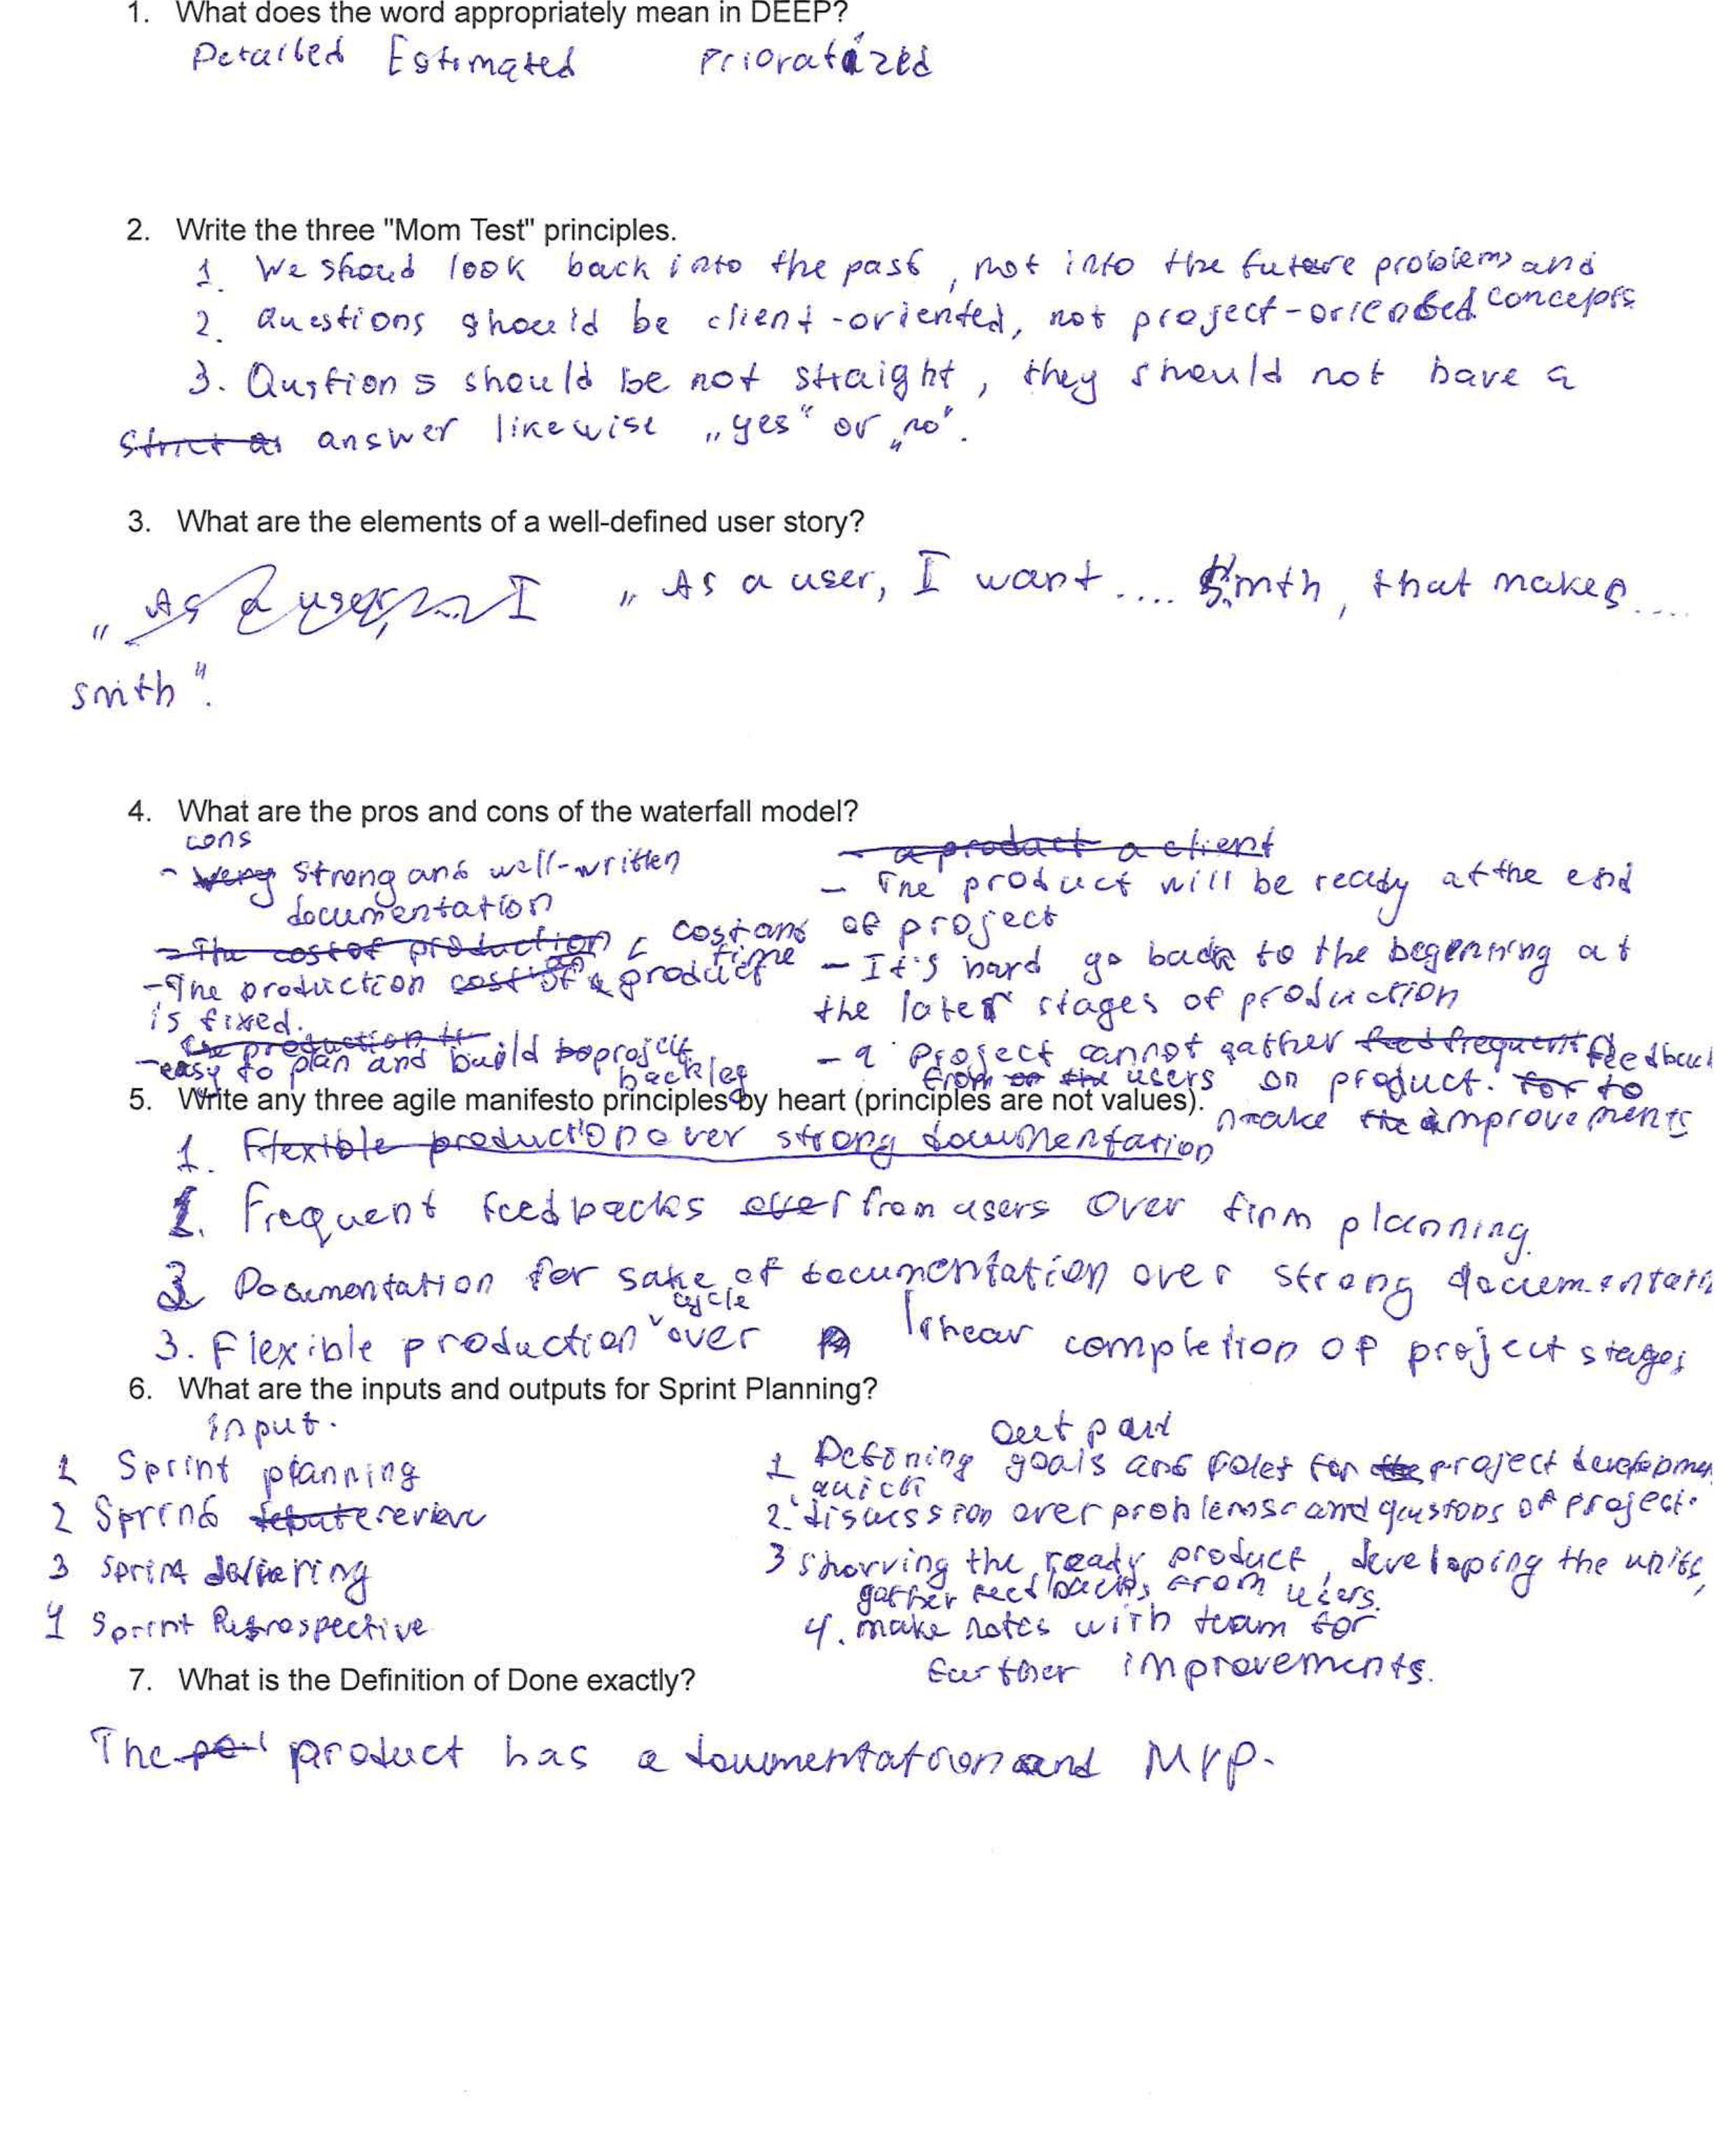 1. What does the word appropriately mean in DEEP?
Detailed Estimated Prioratized
2. Write the three "Mom Test" principles.
1. We shoud look back into the past, not into the future problems and
concepts
2. Questions should be client-oriented, not project-oriented
3. Qustions should be not straight, they should not have a
answer likewise „yes" or „no".
3. What are the elements of a well-defined user story?
„ As a user, I
„ As a user, I want .... smth, that makes ....
smth".
4. What are the pros and cons of the waterfall model?
cons
- Very strong and well-written
documentation
- The cost of production
cost and time
- The production cost of a product
is fixed.
the production
- easy to plan and build project
backlog
- a product a client
- The product will be ready at the end
of project
- It's hard go back to the beginning at
the later stages of production
- a project cannot gather feedback
from users on product. for to
make improvements
5. Write any three agile manifesto principles by heart (principles are not values).
1. Flexible production over strong documentation
1. Frequent feedbacks over from users over firm planning.
2 Documentation for sake of documentation over strong
cycle
3. Flexible production over linear completion of project stages
6. What are the inputs and outputs for Sprint Planning?
input.
1 Sprint planning
2 Sprint review
3 Sprint
4 Sprint Retrospective
output
1 Defining goals and roles for the project
quick
2. discussion over problems and qustions of project.
3 showing the ready product, developing the units,
gather feedbacks from users.
4. make notes with team for
further improvements.
7. What is the Definition of Done exactly?
The product has a documentation and MVP.